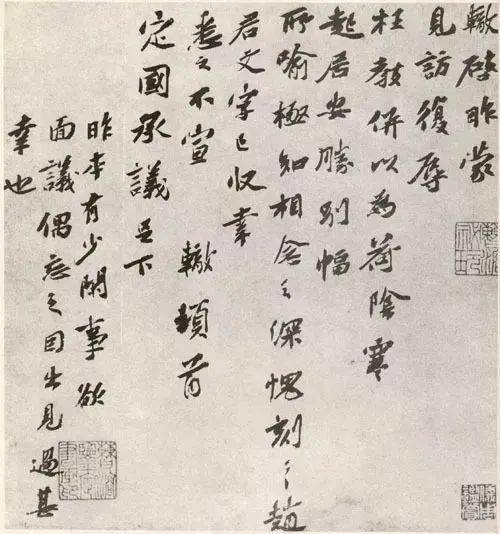 轍啓昨蒙
見訪復辱
枉教併以為荷陰寒
起居安勝別幅
所喻極知相念之深愧刻〻趙
君文字已收幸
悉之不宣 轍頓首
定國承議足下
昨本有少閑事欲
面議偶忘之因出見過甚
幸也